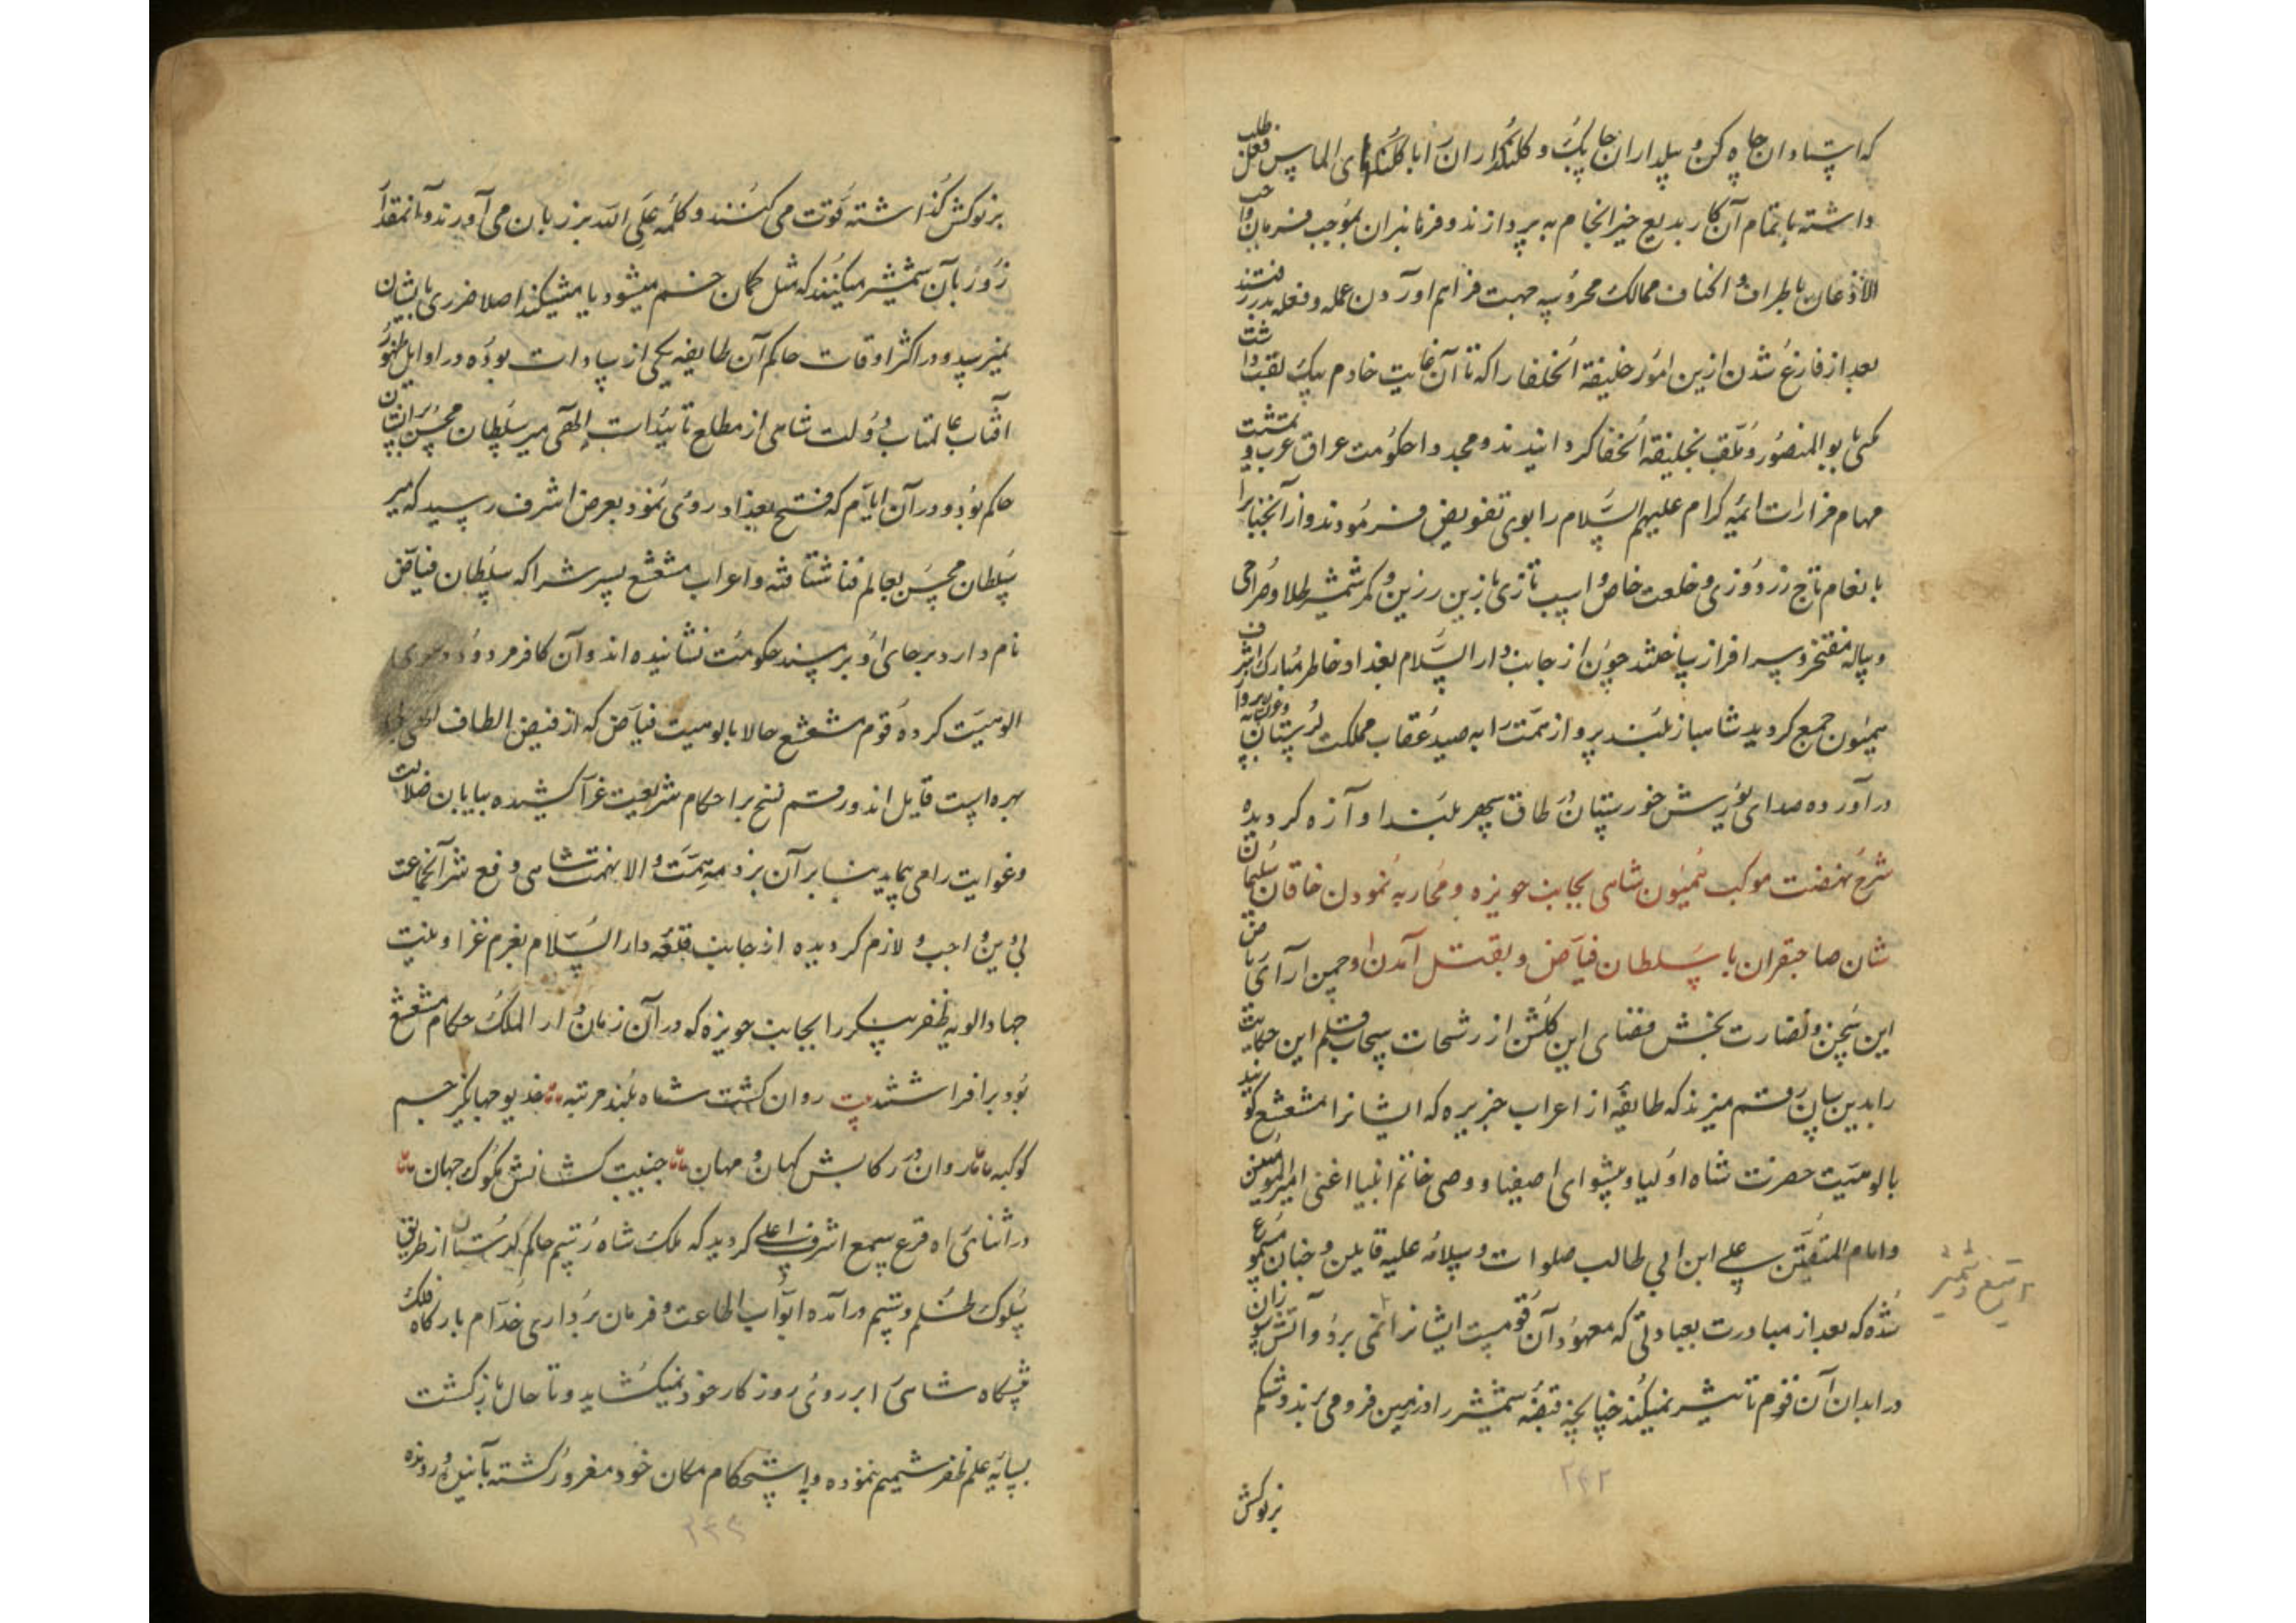 که استادان چاه کن و بیلداران چابک و کلنگداران را با کلنگهای الماس فعل طلب
داشته باتمام آن کار بدیع خیر انجام به پردازند و فرمانبران بموجب فرمان واجب
الاذعان باطراف و اکناف ممالک محروسه جهت فراهم اوردن عمله و فعله بدر رفتند
بعد از فارغ شدن ازین امور خلیفة الخلفا را که تا آن غایت خادم بیک لقب داشت
مکنی بابو المنصور و ملقب بخلیفة الخلفا کردانیدند و مجددا حکومت عراق عرب و تمشیت
مهام مزارات ائمه کرام علیهم السلام را بوی تفویض فرمودند و از آنجناب را
بانعام تاج زردوزی و خلعت خاص و اسب تازی با زین زرین و کمر شمشیر طلا و صراحی
و پیاله مفتخر و سرافراز ساختند چون از جانب دار السلام بغداد خاطر مبارک اشرف
همیون جمع کردید شاهباز بلند پرواز همت را به صید عقاب مملکت لرستان به پرواز
درآورده صدای یورش خورستان در طاق سپهر بلند اوازه کردیده
شرح نهضت موکب همیون شاهی بجانب حویزه و محاربه نمودن خاقان سلیمان
شان صاحبقران با سلطان فیاض و بقتل آمدن او چمن آرای ریاض
این سخن و نضارت بخش فضای این کلشن از رشحات سحاب قلم این حکایت
را بدین سان رقم میزند که طایفه از اعراب جزیره که ایشانرا مشعشع کویند
بالوهیت حضرت شاه اولیا و پیشوای اصفیا و وصی خاتم انبیا اعنی امیرالمومنین
و امام المتقین علی ابن ابی طالب صلوات و سلامه علیه قایلین و چنان مسموع
شده که بعد از مبادرت بعبادتی که معهود آن قومست ایشانرا نمی برد و آتش سوزان
در ابدان آن قوم تاثیر نمیکند چنانچه قبضه شمشیر را در زمین فرو می برند و شکم
بر نوکش
۲۴۲
بر نوکش کذاشته قوت می کنند و کلمه علی الله بر زبان می آورند و آنمقدار
زور بآن شمشیر میکنند که مثل کمان خم میشود یا میشکند اصلا ضرری بایشان
نمیرسد و در اکثر اوقات حاکم آن طایفه یکی از سادات بوده در اوایل ظهور
آفتاب عالمتاب دولت شاهی از مطلع تائیدات الهی میر سلطان محسن برایشان
حاکم بود و در آن ایام که فتح بغداد روی نمود بعرض اشرف رسید که میر
سلطان محسن بعالم فنا شتافته و اعراب مشعشع پسرش را که سلطان فیاض
نام دارد بر جای او بر مسند حکومت نشانیده اند و آن کافر مردود دعوی
الوهیت کرده قوم مشعشع حالا بالوهیت فیاض که از فیض الطاف الهی بی
بهره است قایل اند و رقم نسخ بر احکام شریعت غرا کشیده بیابان ضلالت
و غوایت را می پیماید بنابرآن بر ذمه همت والا نهمت شاهی دفع شر آنجماعت
بی دین واجب و لازم کردیده از جانب قلعه دار السلام بعزم غزا و نیت
جهاد الویه ظفر پیکر را بجانب حویزه که در آن زمان دار الملک حکام مشعشع
بود برافراشتند بیت روان کشت شاه بلند مرتبه خدیو جهانکیر جم
کوکبه روان در رکابش کهان و مهان جنیبت کشانش ملوک جهان
در اثنای راه قرع سمع اشرف اعلی کردید که ملک شاه رستم حاکم لرستان از طریق
سلوک ظلم و ستیم درآمده ابواب اطاعت و فرمان برداری خدام بارکاه فلک
پیشکاه شاهی را بر روی روزکار خود نمیکشاید و تا حال بازکشت
بسایه علم ظفر شمیم ننموده و به استحکام مکان خود مغرور کشته بآئین
۲۴۳